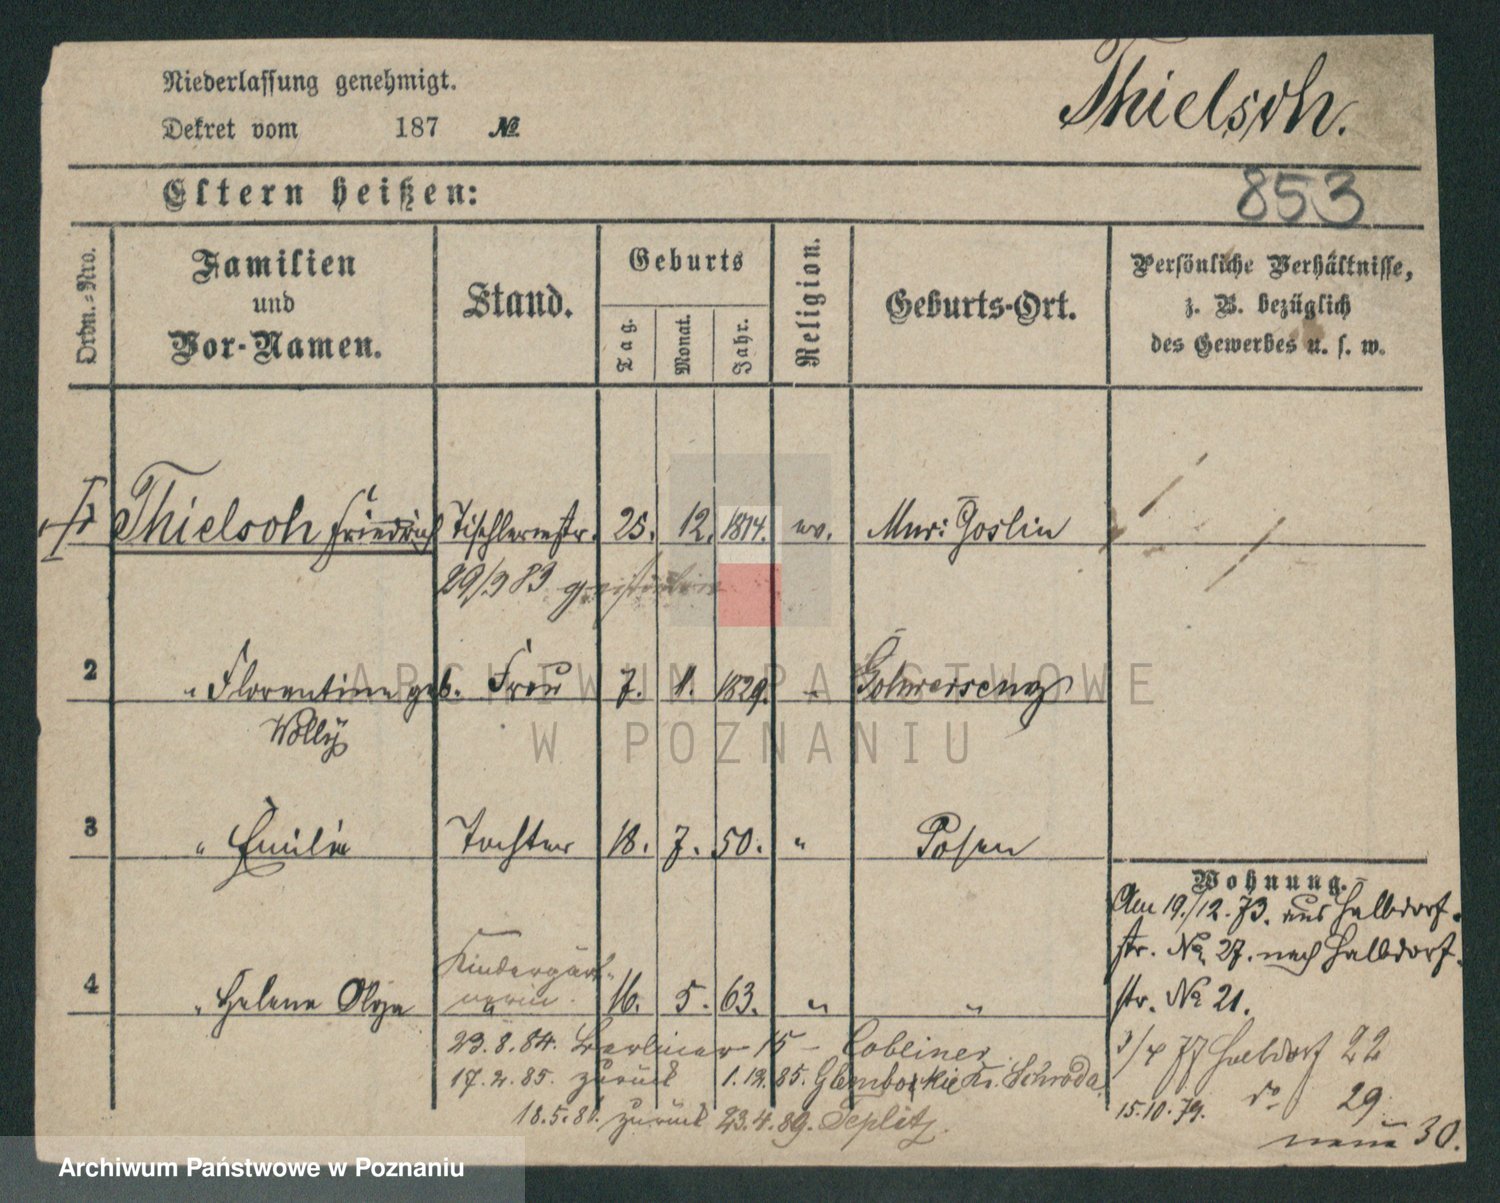 Niederlassung genehmigt.
Thielsch.
Dekret vom 187 №
853
Eltern heißen:
Ordn.-Nro.
Familien
und
Vor-Namen.
Stand.
Geburts
Tag.
Monat.
Jahr.
Religion.
Geburts-Ort.
Persönliche Verhältnisse,
z. B. bezüglich
des Gewerbes u. s. w.
1 Thielsch Friedrich Tischlermstr. 25. 12. 1814. ev. Mur: Goslin
29/9 83
2 " Florentine geb. Frau 7. 1. 1829. "
Wolly
3 " Emilie Tochter 18. 7. 50. " Posen
Wohnung.
Am 19./12. 73. aus Halbdorf-
str. № 27. nach Halbdorf-
str. № 21.
4 " Helene Olga Kindergärt-
nerin. 16. 5. 63. " "
23.8.84. Berliner 15 –
17.2.85. zurück 1.12.85. Kr. Schroda
18.5.86. zurück 23.4.89. Teplitz.
77 Halbdorf 22
15.10.79. do 29
neue 30.
ARCHIWUM PAŃSTWOWE
W POZNANIU
Archiwum Państwowe w Poznaniu